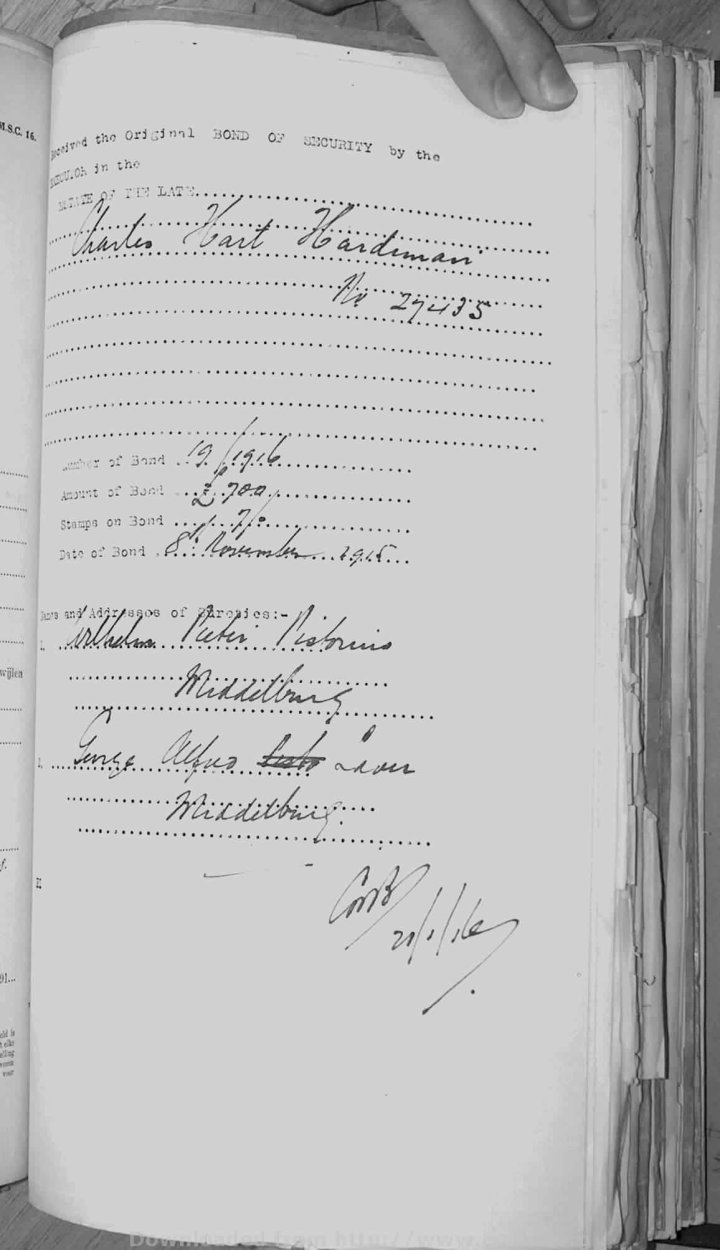 M.S.C. 16.
Received the Original BOND OF SECURITY by the
EXECUTOR in the
ESTATE OF THE LATE
Charles Hart Hardiman
No 27435
Number of Bond 19/1916
Amount of Bond £700
Stamps on Bond 7/-
Date of Bond 8th November 1915
Names and Addresses of Sureties:-
1. Wilhelm Pieter Pistorius
Middelburg
2. George Alfred Laver
Middelburg.
21/1/16
wijlen